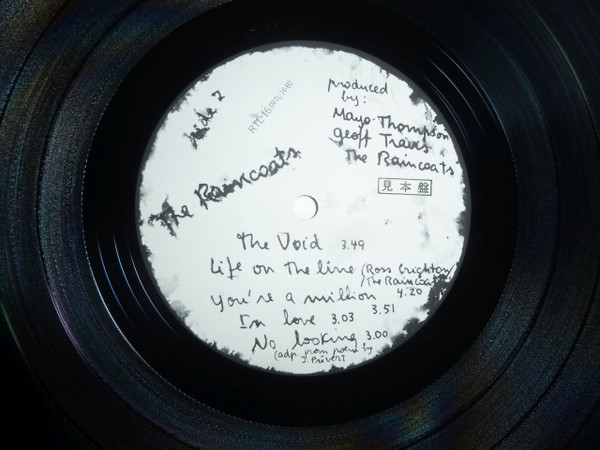 side 2
RTL-16 (RTL 16 B)
produced
by:
Mayo Thompson
geoff Travis
The Raincoats
見本盤
The Raincoats
The Void 3.49
Life on the line (Ross Crighton
/The Raincoats) 4.20
you're a million 3.51
In love 3.03
No looking 3.00
(adp. from poem by
J. Prévert